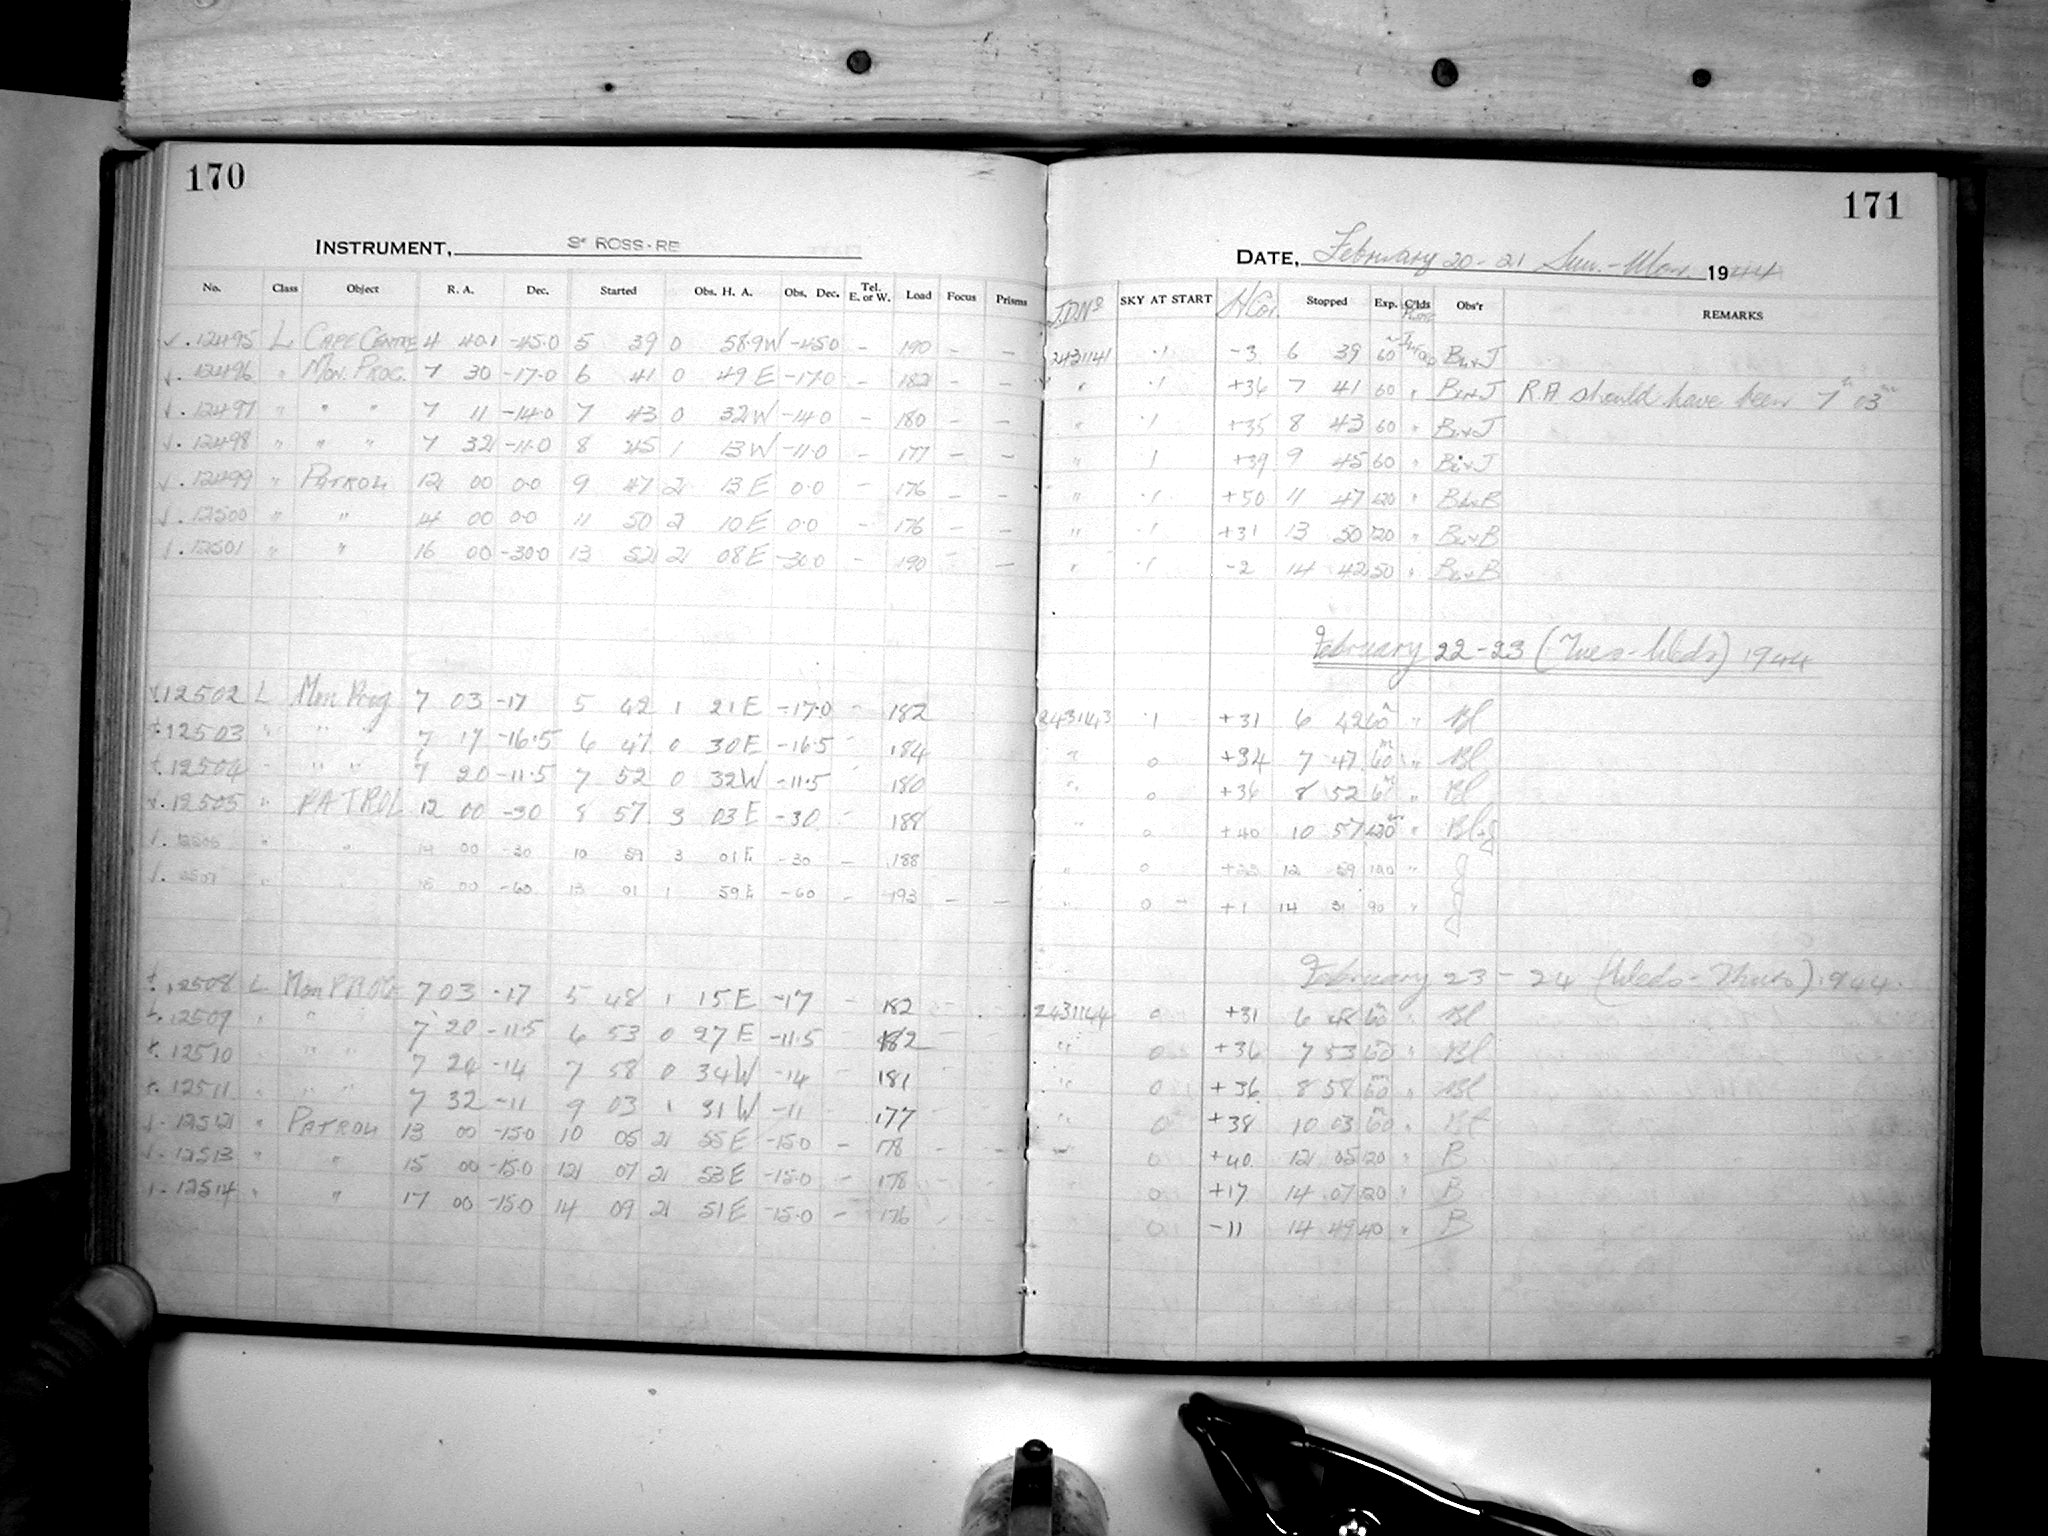 170
INSTRUMENT, 3" ROSS-RE
No. Class Object R. A. Dec. Started Obs. H. A. Obs. Dec. Tel. E. or W. Load Focus Prisms
12495 L CAPE CENTRE 4 40.1 -45.0 5 39 0 58.9W -45.0 - 190 - -
12496 " MON. PROG. 7 30 -17.0 6 41 0 49 E -17.0 - 182 - -
12497 " " " 7 11 -14.0 7 43 0 32W -14.0 - 180 - -
12498 " " " 7 32 -11.0 8 45 1 13W -11.0 - 177 - -
12499 " PATROL 12 00 0.0 9 47 2 13 E 0.0 - 176 - -
12500 " " 14 00 0.0 11 50 2 10 E 0.0 - 176 - -
12501 " " 16 00 -30.0 13 52 2 08 E -30.0 - 190 - -
12502 L Mon Prog 7 03 -17 5 42 1 21 E -17.0 - 182
12503 " " " 7 17 -16.5 6 47 0 30 E -16.5 - 184
12504 " " " 7 20 -11.5 7 52 0 32W -11.5 - 180
12505 " PATROL 12 00 -30 8 57 3 03 E -30 - 188
12506 " " 14 00 -30 10 59 3 01 E -30 - 188
12507 " " 00 -60 13 01 1 59 E -60 - 193 - -
12508 L Mon PROG 7 03 -17 5 48 1 15 E -17 - 182
12509 " " " 7 20 -11.5 6 53 0 27 E -11.5 - 182
12510 " " " 7 24 -14 7 58 0 34W -14 - 181
12511 " " " 7 32 -11 9 03 1 31 W -11 177
12512 " PATROL 13 00 -15.0 10 05 2 55 E -15.0 - 178 - -
12513 " " 15 00 -15.0 12 07 2 53 E -15.0 - 178
12514 " " 17 00 -15.0 14 09 2 51 E -15.0 - 176
171
DATE, February 20-21 Sun.-Mon. 1944
J.D. No SKY AT START H Cor. Stopped Exp. C'lds Obs'r REMARKS
2431141 .1 -3 6 39 60 Bl+J
" .1 +36 7 41 60 " Bl+J R.A. should have been 7h 03m
" .1 +35 8 43 60 " Bl+J
" 1 +39 9 45 60 " Bl+J
" .1 +50 11 47 120 " Bl+B
" .1 +31 13 50 120 " Bl+B
" .1 -2 14 42 50 " Bl+B
February 22-23 (Tues-Weds) 1944
2431143 .1 +31 6 42 60m " Bl
" 0 +34 7 47 60m " Bl
" 0 +36 8 52 60m " Bl
" 0 +40 10 57 120m " Bl+J
" 0 12 59 120 " J
" 0 - +1 14 31 90 " J
February 23-24 (Weds-Thurs) 1944.
2431144 0 +31 6 48 60m " Bl
" 0 +36 7 53 60m " Bl
" 0 +36 8 58 60m " Bl
" 0 +38 10 03 60m " Bl
" 0 +40 12 05 120 " B
" 0 +17 14 07 120 " B
0 -11 14 49 40 " B